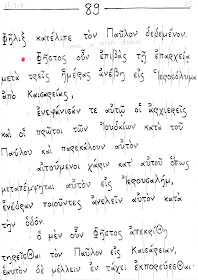 83
φῆλιξ κατέλιπε τὸν Παῦλον δεδεμένον.
Φῆστος οὖν ἐπιβὰς τῇ ἐπαρχείᾳ
μετὰ τρεῖς ἡμέρας ἀνέβη εἰς Ἱεροσόλυμα
ἀπὸ Καισαρείας,
ἐνεφάνισάν τε αὐτῷ οἱ ἀρχιερεῖς
καὶ οἱ πρῶτοι τῶν Ἰουδαίων κατὰ τοῦ
Παύλου καὶ παρεκάλουν αὐτὸν
αἰτούμενοι χάριν κατ᾽ αὐτοῦ ὅπως
μεταπέμψηται αὐτὸν εἰς Ἰερουσαλήμ,
ἐνέδραν ποιοῦντες ἀνελεῖν αὐτὸν κατὰ
τὴν ὁδόν.
ὁ μὲν οὖν Φῆστος ἀπεκρίθη
τηρεῖσθαι τὸν Παῦλον εἰς Καισάρειαν,
ἑαυτὸν δὲ μέλλειν ἐν τάχει ἐκπορεύεσθαι·